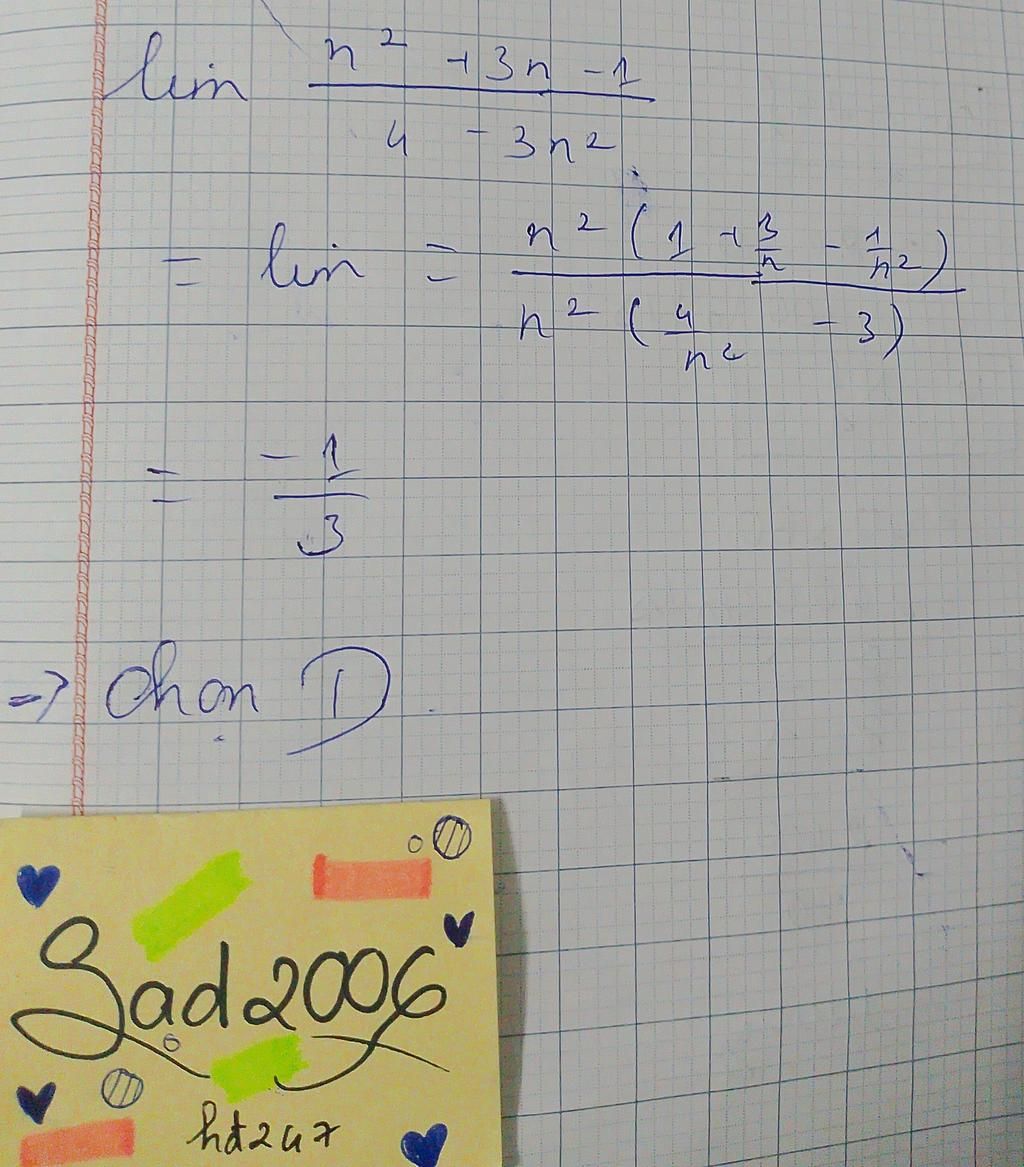 lim n² + 3n - 1 / 4 - 3n²
= lim = n² (1 + 3/n - 1/n²) / n² (4/n² - 3)
= -1/3
=> Chọn D.
Sad2006
hd247